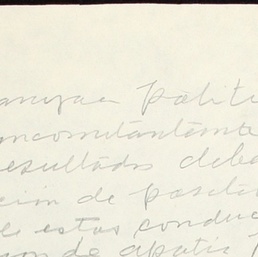 politi
concomitantemente
resultados debe
ción de positi
de estas conduc
son de apatía